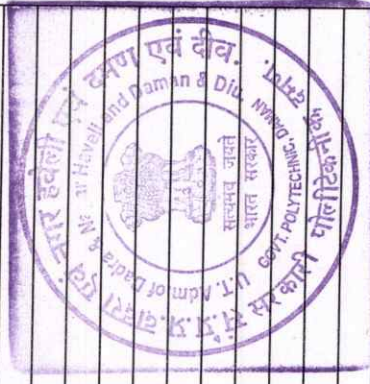 सं.प्र.प्र. दादरा एवं नगर हवेली एवं दमण एवं दीव.
सरकारी पोलीटेकनीक दमण.
U.T. Adm. of Dadra & Haveli and Daman & Diu.
GOVT. POLYTECHNIC, DAMAN
सत्यमेव जयते
भारत सरकार